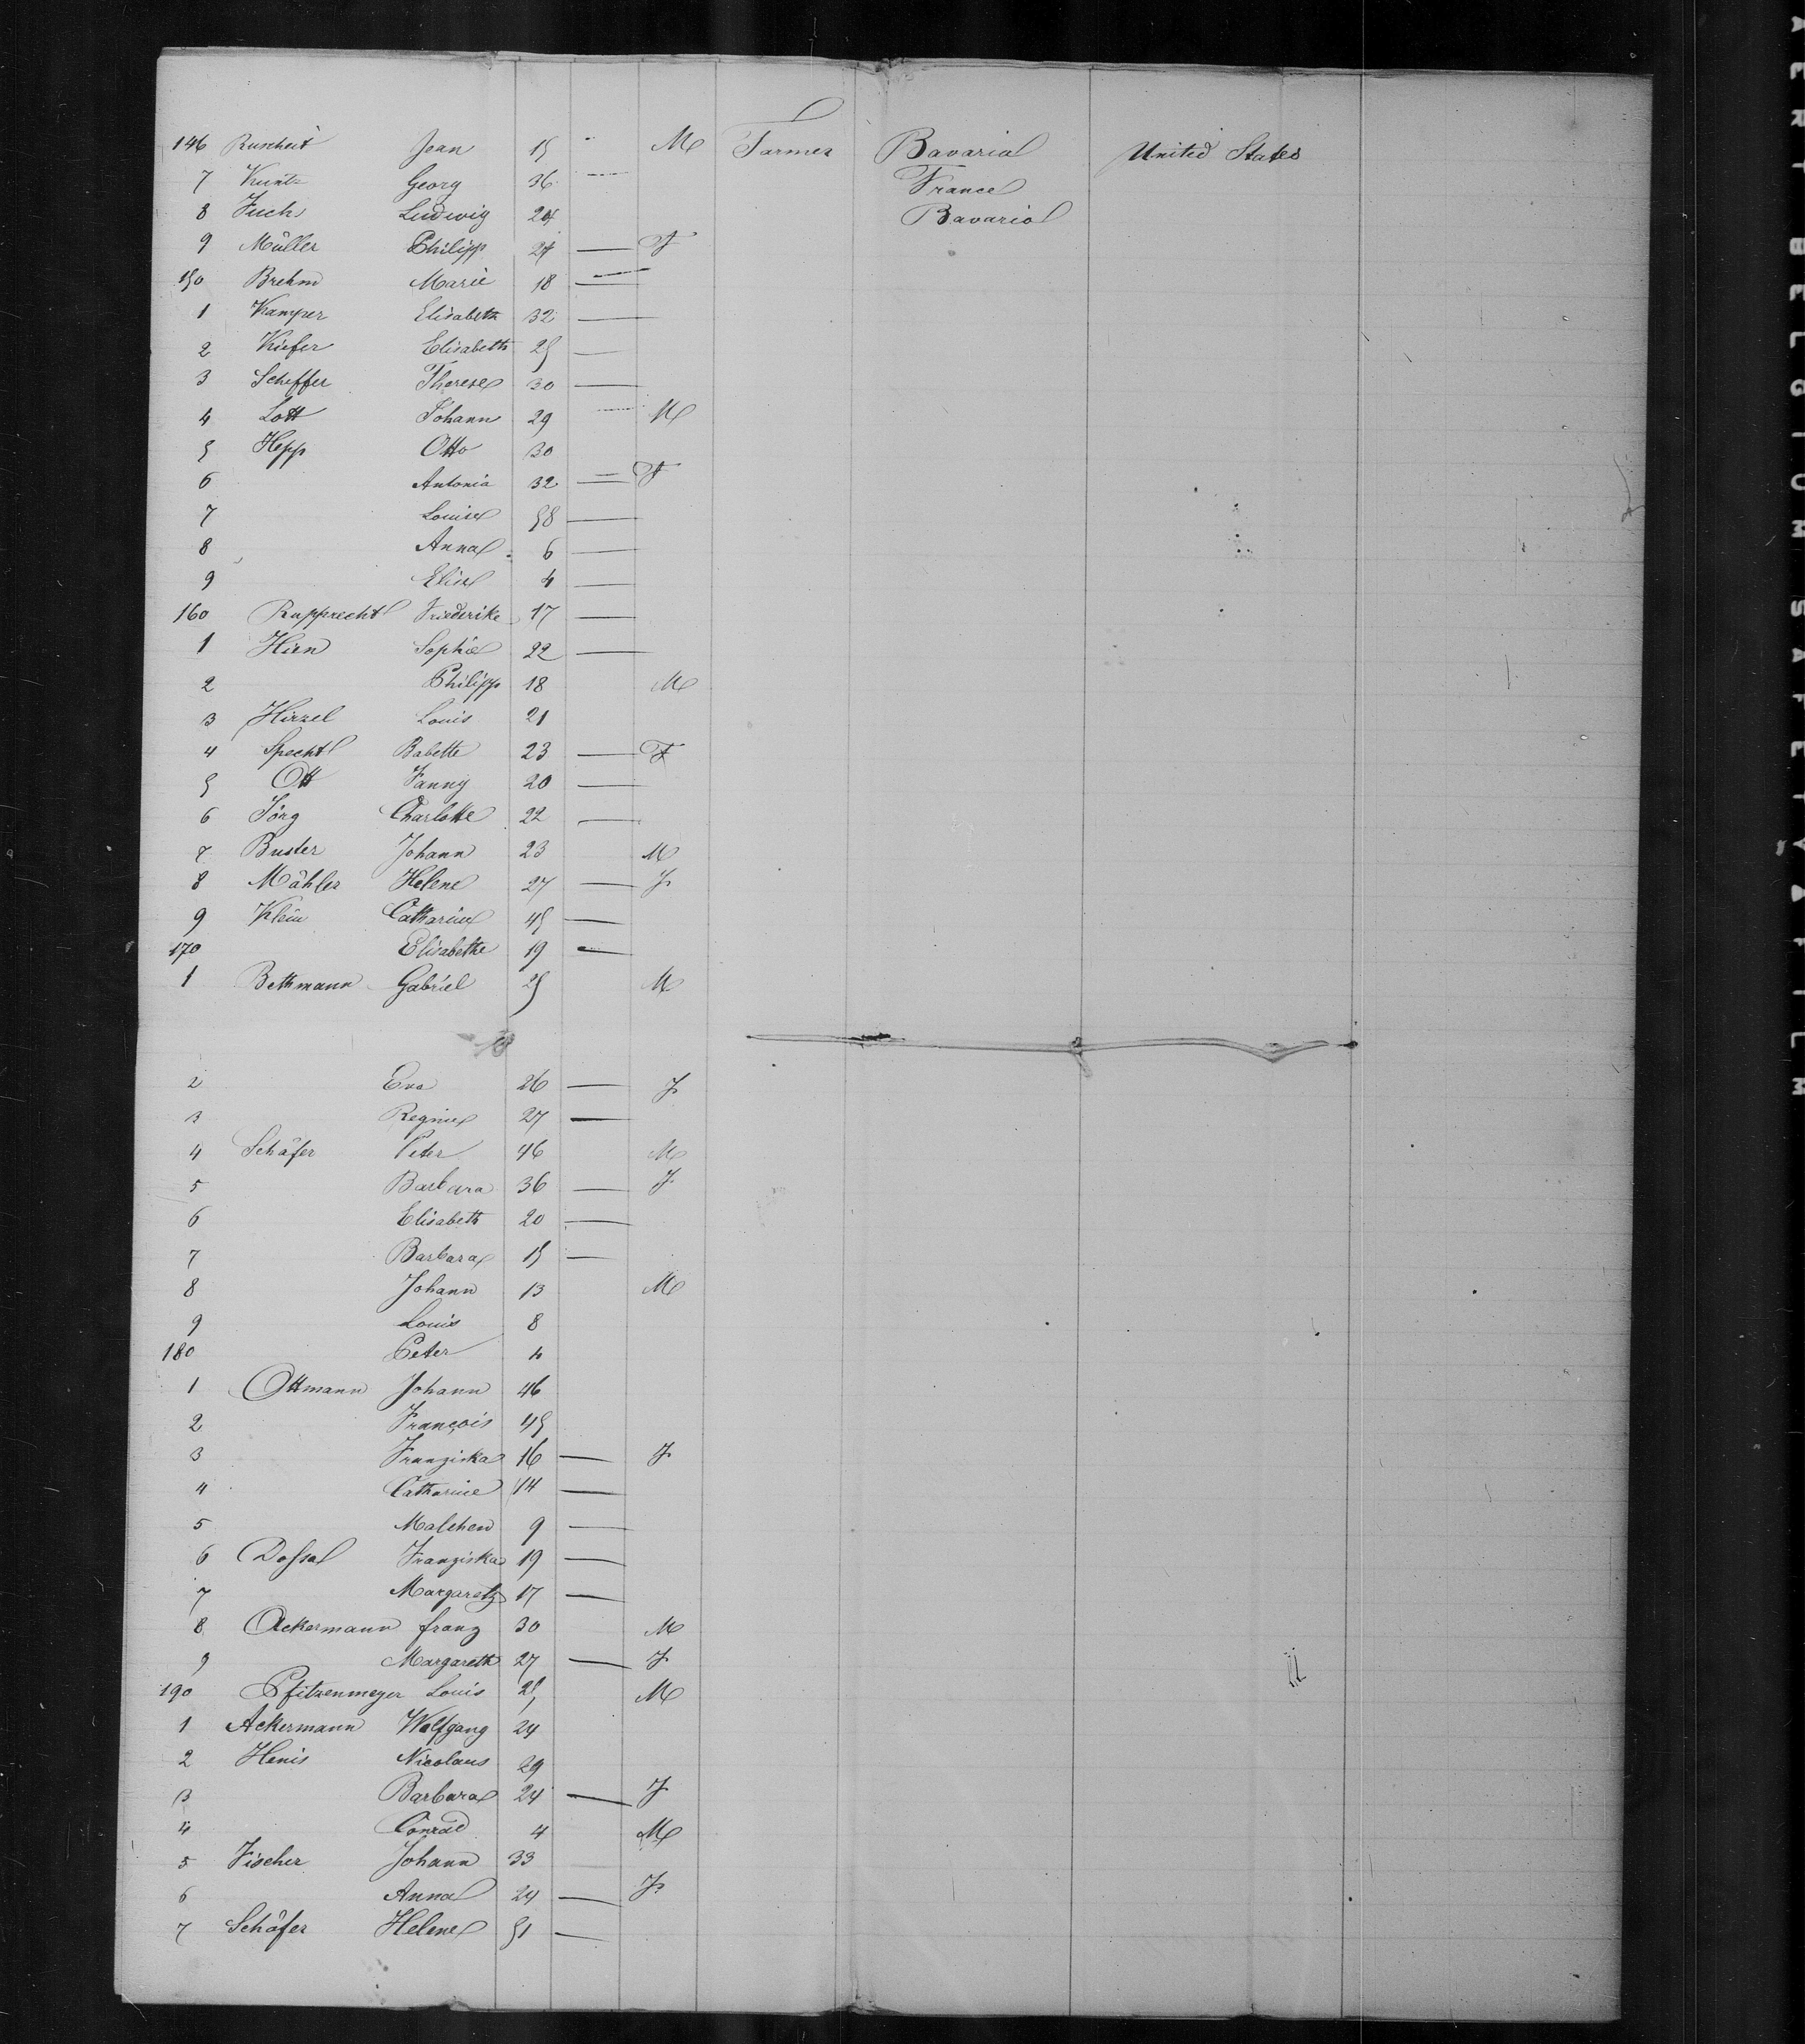 146 Ruscheit Jean 15 M Farmer Bavaria United States
7 Kuntz Georg 36 France
8 Fuchs Ludwig 24 Bavaria
9 Müller Philipp 24 — F
150 Brehm Marie 18 —
1 Kamper Elisabeth 32 —
2 Kiefer Elisabeth 25 —
3 Scheffer Therese 30 —
4 Lott Johann 29 M
5 Hepp Otto 30
6 Antonia 32 — F
7 Louise 58 —
8 Anna 6 —
9 Elise 4 —
160 Rupprecht Friederike 17 —
1 Hien Sophie 22 —
2 Philipp 18 M
3 Hirzel Louis 21
4 Specht Babette 23 — F
5 Ott Fanny 20 —
6 Jörg Charlotte 22 —
7 Buster Johann 23 M
8 Mähler Helene 27 — F
9 Klein Catharine 45 —
170 Elisabethe 19 —
1 Bethmann Gabriel 25 M
2 Eva 26 — F
3 Regine 27 —
4 Schäfer Peter 46 M
5 Barbara 36 — F
6 Elisabeth 20 —
7 Barbara 15 —
8 Johann 13 M
9 Louis 8
180 Peter 4
1 Ottmann Johann 46
2 François 45
3 Franziska 16 — F
4 Catharine 14 —
5 Malchen 9 —
6 Dossal Franziska 19 —
7 Margareth 17 —
8 Ackermann franz 30 M
9 Margareth 27 — F
190 Pfitzenmeyer Louis 25 M
1 Ackermann Wolfgang 24
2 Henis Nicolaus 29
3 Barbara 24 — F
4 Conrad 4 M
5 Fischer Johann 33
6 Anna 24 — F
7 Schäfer Helene 51 —
SAFETY FILM